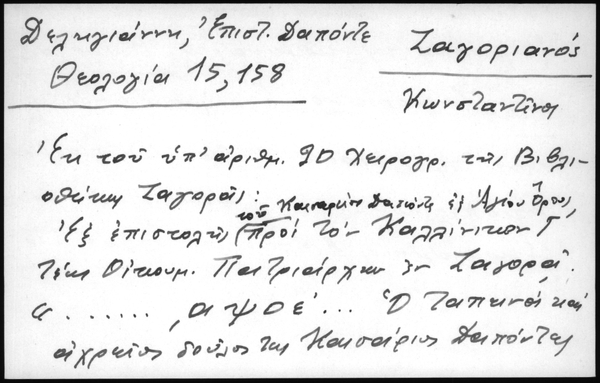 Δεληγιάννη, Ἐπιστ. Δαπόντε
Ζαγοριανός
Θεολογία 15, 158
Κωνσταντῖνος
Ἐκ τοῦ ὑπ' ἀριθμ. 90 χειρογρ. τῆς Βιβλι-
οθήκης Ζαγορᾶς:
τοῦ Καισαρίου Δαπόντε ἐξ Ἁγίου Ὄρους,
Ἐξ ἐπιστολῆς (πρὸς τὸν Καλλίνικον Γ
τέως Οἰκουμ. Πατριάρχην ἐν Ζαγορᾷ.
« ....... , αψοε´... Ὁ ταπεινός καὶ
ἀχρεῖος δοῦλος της Καισάριος Δαπόντες